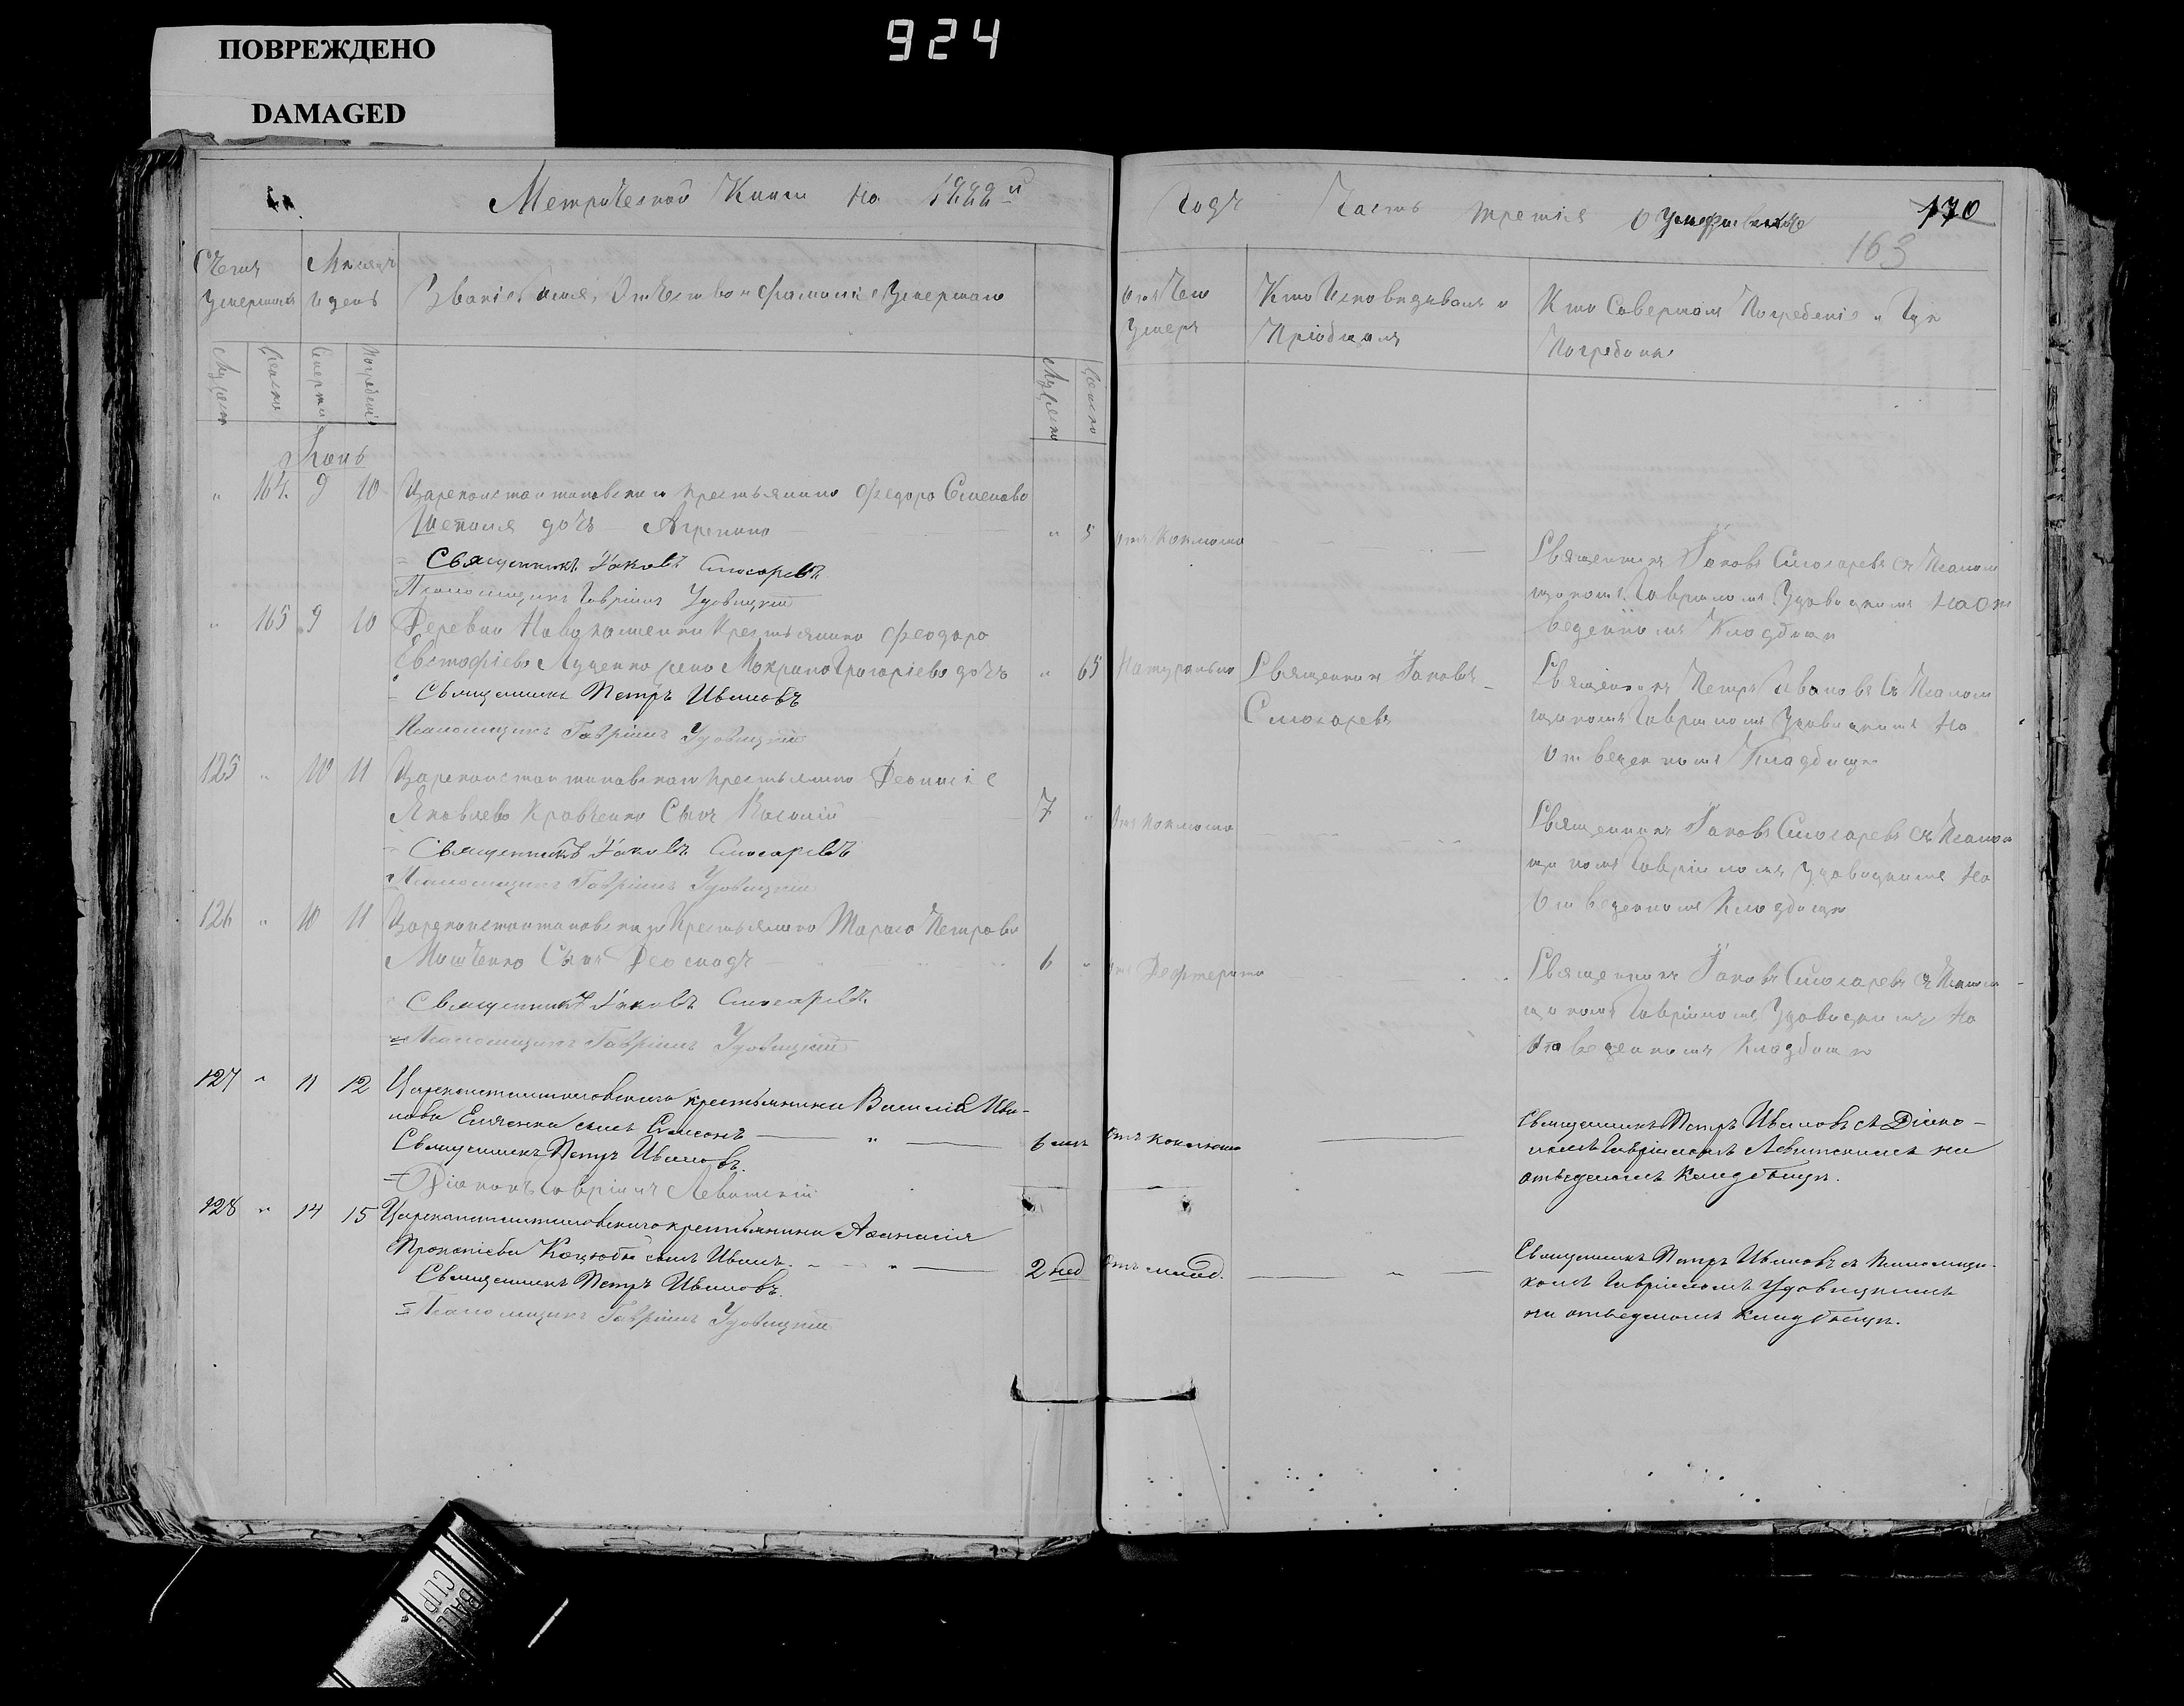 ПОВРЕЖДЕНО
DAMAGED
924
Метрической Книги на 1888й
Годъ Часть третія О Умершихъ 170
163
Счетъ Умершихъ
Мѣсяцъ и день
Званіе, Имя, Отчество и фамиліе Умершаго
Отъ Чего Умеръ
Кто Исповѣдывалъ и Пріобщалъ
Кто Совершалъ Погребеніе и Гдѣ Погребены
Мужеска
Женска
Смерти
Погребенія
Мужеска
Женска
" 164. 9 10 Цареконстантиновскаго крестьянина Феодора Семенова
дочь Агрепина " 5 Отъ Коклюша
Священникъ Іаковъ Слюсаревъ
Псаломщикъ Гавріилъ Удовицкій
Священникъ Іаковъ Слюсаревъ съ Псалом
щикомъ Гавриломъ Удовицкимъ На От
веденномъ Кладбищѣ
" 165 9 10 Деревни Крестьянина Феодора
Евстафіева Луценко жена Макрина Григоріева дочь " 65 Натурально Священникъ Іаковъ
Слюсаревъ
Священникъ Петръ Ивановъ
Псаломщикъ Гавріилъ Удовицкій
Священникъ Петръ Ивановъ Съ Псалом
щикомъ Гавриломъ Удовицкимъ На
Отведенномъ Кладбищѣ
125 " 10 11 Цареконстантиновскаго крестьянина Деонисіе
Яковлева Кравченко Сынъ Василій 7 " Отъ Коклюша
Священникъ Іаковъ Слюсаревъ
Псаломщикъ Гавріилъ Удовицкій
Священникъ Іаковъ Слюсаревъ съ Псалом
щикомъ Гавріиломъ Удовицкимъ На
Отведенномъ Кладбищѣ
126 " 10 11 Цареконстантиновскаго Крестьянина Тараса Петрова
Сынъ 6 " Отъ Дефтерита
Священникъ Іаковъ Слюсаревъ.
Псаломщикъ Гавріилъ Удовицкій
Священникъ Іаковъ Слюсаревъ съ Псалом
щикомъ Гавріиломъ Удовицкимъ На
Отведенномъ Кладбищѣ
127 " 11 12 Цареконстантиновскаго крестьянина Василія Ива-
нова сынъ Симеонъ " 6 мѣс Отъ коклюша
Священникъ Петръ Ивановъ.
Діаконъ Гавріилъ Левитскій
Священникъ Петръ Ивановъ съ Діако-
номъ Гавріиломъ Левитскимъ на
отведенномъ кладбищѣ.
128 " 14 15 Цареконстантиновскаго крестьянина Аѳанасія
Прокопіева Коцюбы сынъ Иванъ. " 2 нед Отъ млад. "
Священникъ Петръ Ивановъ.
Псаломщикъ Гавріилъ Удовицкій
Священникъ Петръ Ивановъ съ Псаломщи-
комъ Гавріиломъ Удовицкимъ
на отведенномъ кладбищѣ.
BALL
CLIP